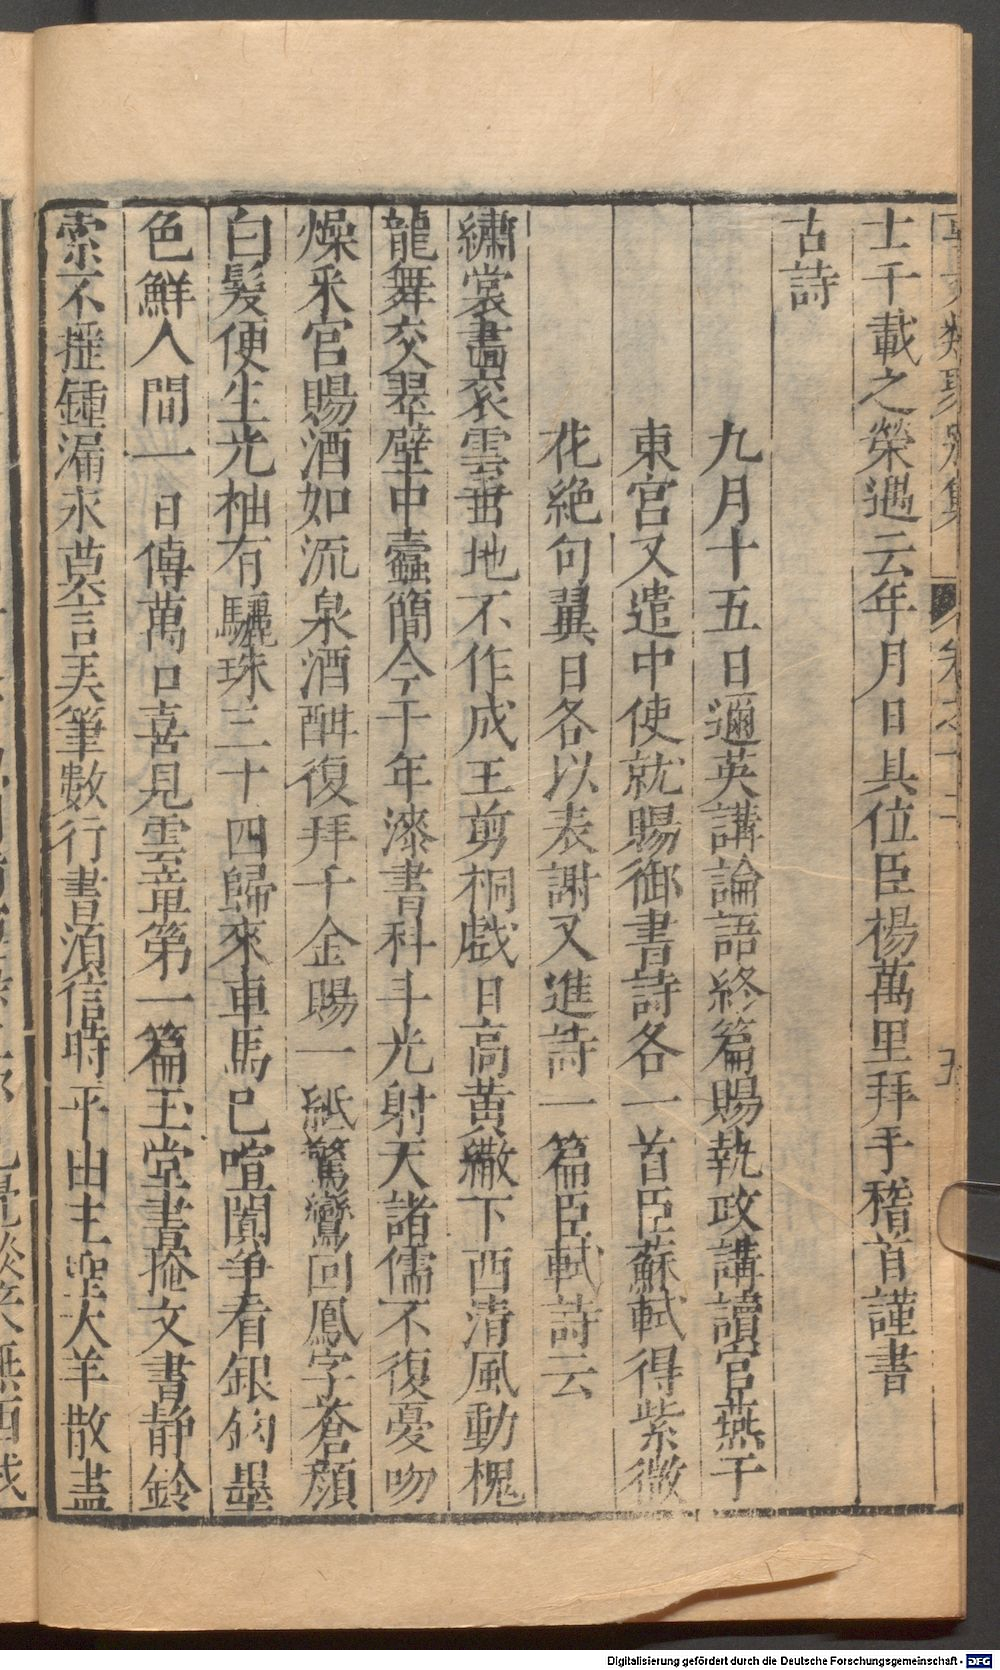 士千載之榮遇云年月日具位臣楊萬里拜手稽首謹書
古詩
九月十五日邇英講論語終篇賜執政講讀官燕于
東宮又遣中使就賜御書詩各一首臣蘇軾得紫微
花絶句翼日各以表謝又進詩一篇臣軾詩云
繡裳畫衮雲垂地不作成王剪桐戲日高黄繖下西清風動槐
龍舞交翠壁中蠹簡今千年漆書科斗光射天諸儒不復憂吻
燥釆官賜酒如流泉酒酣復拜千金賜一紙驚鸞回鳳字蒼顔
白髮便生光柚有驪珠三十四歸來車馬已喧闐爭看銀鈎墨
色鮮人間一日傳萬口喜見雲章第一篇玉堂晝掩文書静鈴
索不揺鍾漏永莫言弄筆數行書湏信時平由主聖犬羊散盡
Digitalisierung gefördert durch die Deutsche Forschungsgemeinschaft - DFG